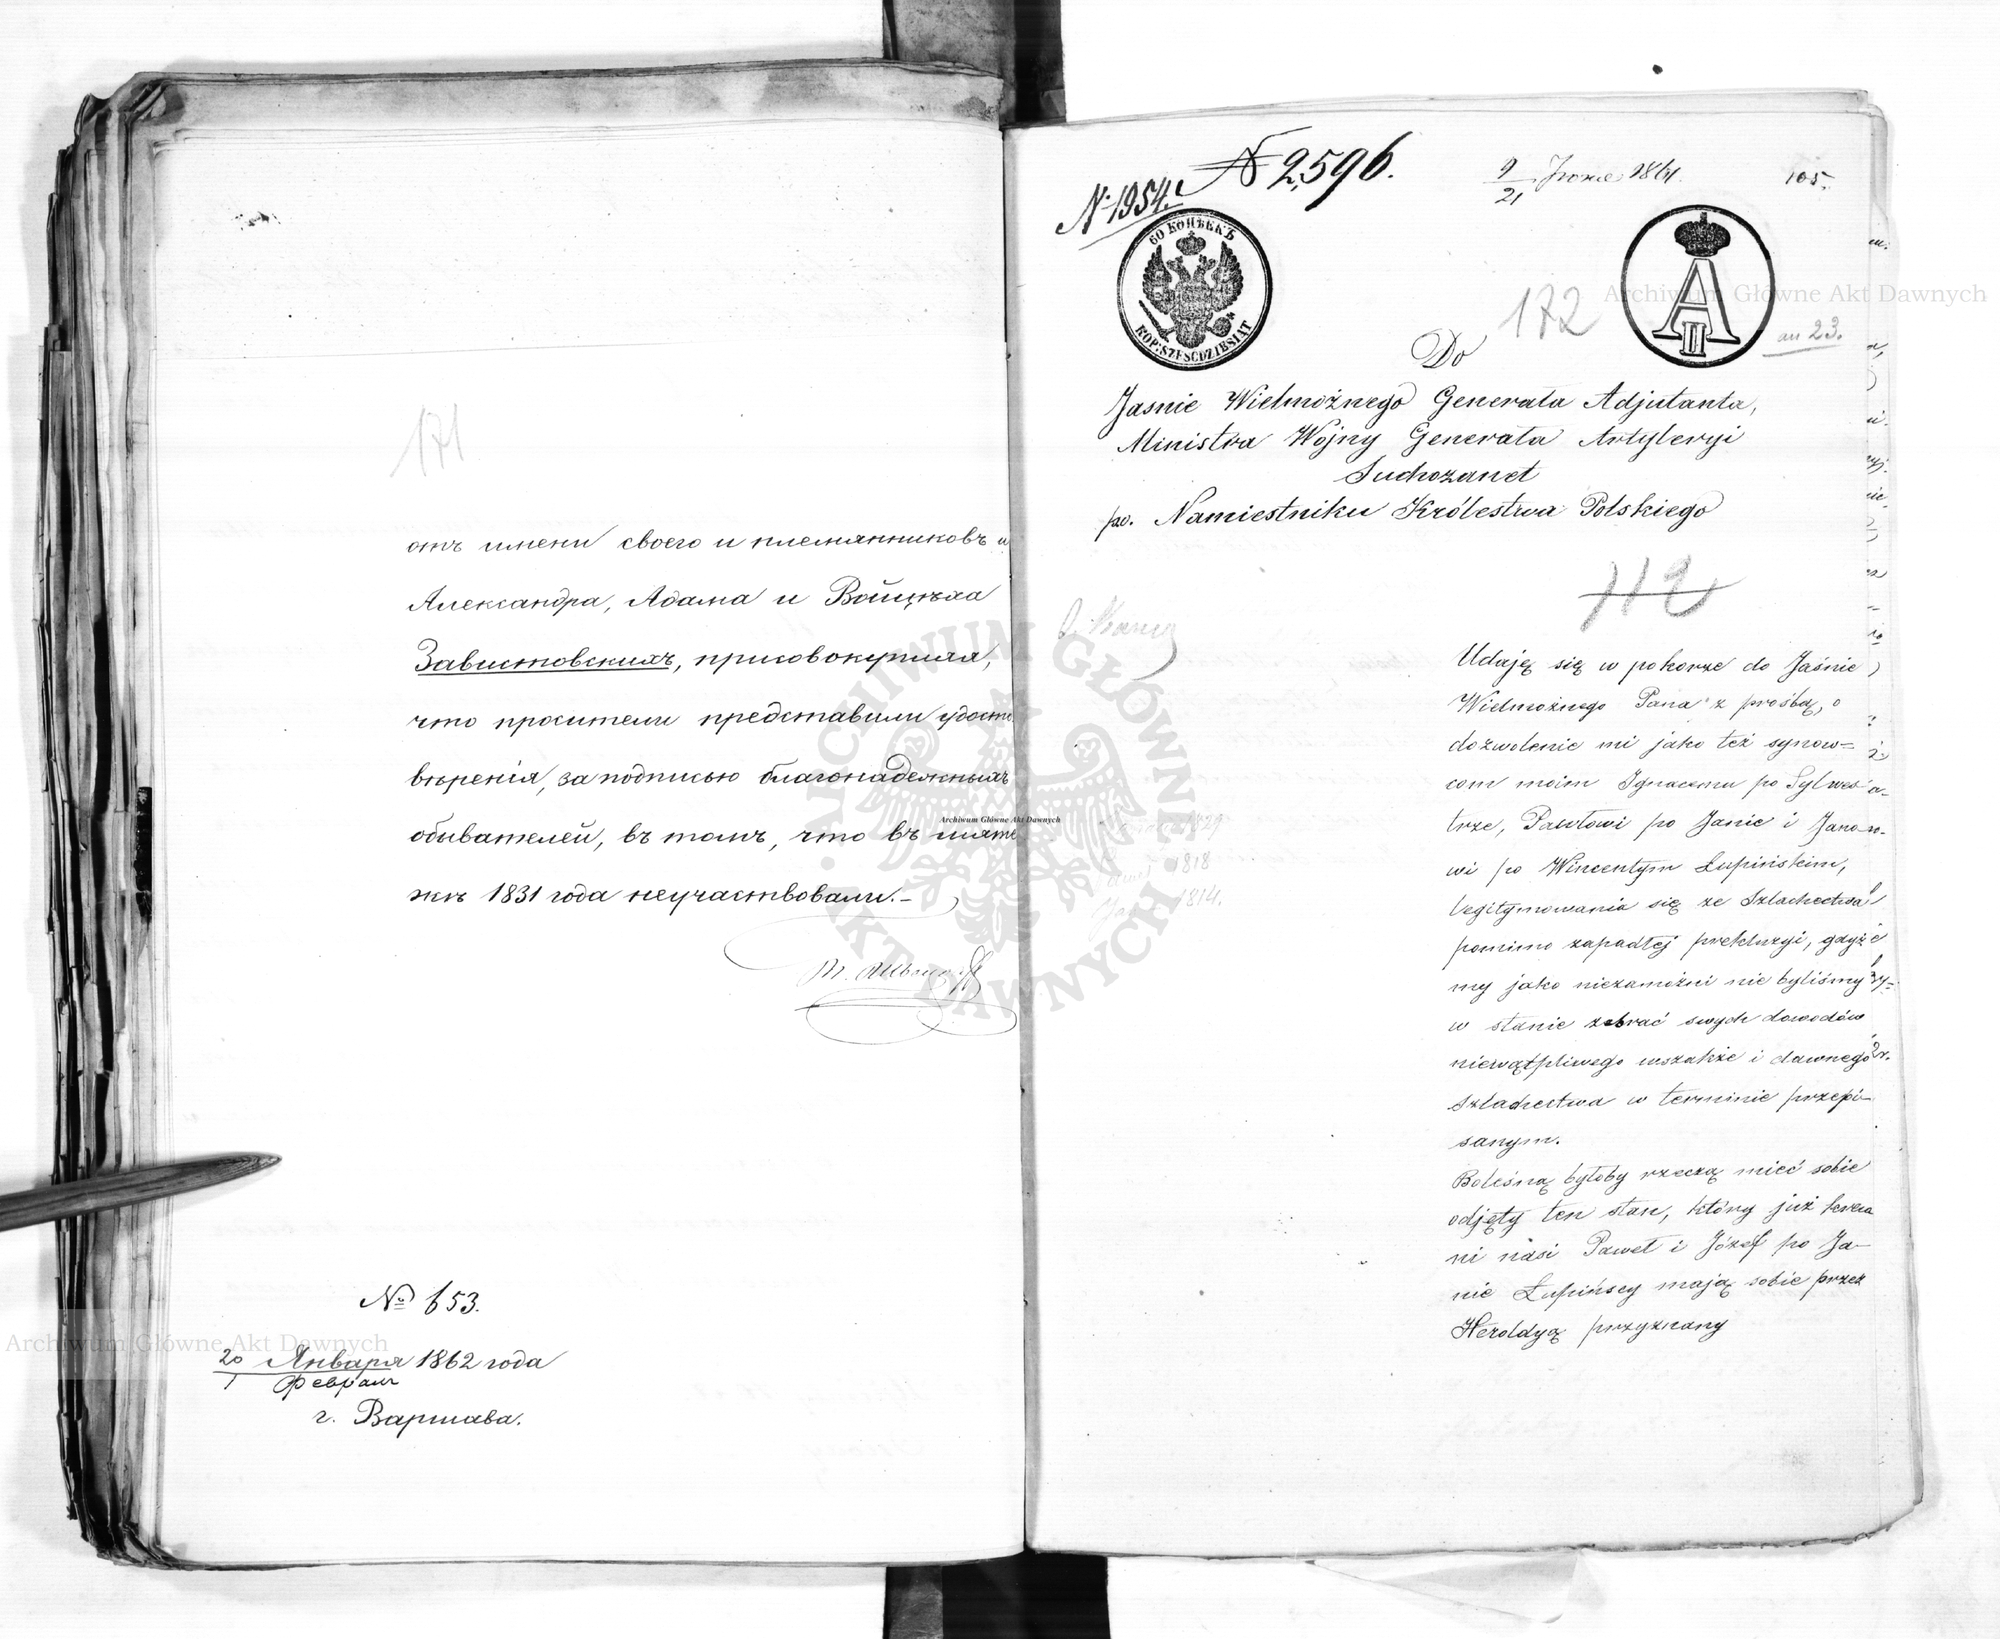 171
отъ имени своего и племянниковъ и
Александра, Адама и Войцѣха
Завистовскихъ, присовокупляя,
что просители представили удосто
вѣренія, за подписью благонадежныхъ
обывателей, въ томъ, что въ мяте
жѣ 1831 года неучаствовали.-
№ 653.
20 Января 1862 года
1 Февраля
г. Варшава.
№ 2,596.
№ 1954.
9/21 1861.
105.
60 КОПѢЕКЪ
KOP: SZEŚĆDZIESIĄT
А II
172
an 23.
Do
Jaśnie Wielmożnego Generała Adjutanta,
Ministra Wojny Generała Artyleryi
Suchozanet
po. Namiestniku Królestwa Polskiego
112
Udaję się w pokorze do Jaśnie
Wielmożnego Pana z prośbą, o
dozwolenie mi jako też synow=
com moim Ignacemu po Sylwes
trze, Pawłowi po Janie i Jano
wi po Wincentym Łupińskim,
legitymowania się ze Szlachectwa
pomimo zapadłej prekluzyi, gdyż
my jako niezamożni nie byliśmy
w stanie zebrać swych dowodów
niewątpliwego wszakże i dawnego
Szlachectwa w terminie przepi-
sanym.
Boleśną byłoby rzeczą mieć sobie
odjęty ten stan, który już krewn
ni nasi Paweł i Józef po Ja-
nie Łupińscy mają sobie przez
Heroldyą przyznany
1829
1818
1814.
Archiwum Główne Akt Dawnych
Archiwum Główne Akt Dawnych
Archiwum Główne Akt Dawnych
ARCHIWUM GŁÓWNE AKT DAWNYCH